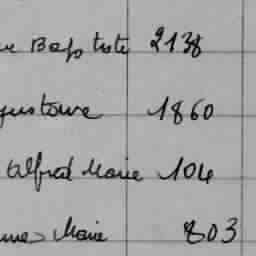 ue Baptiste 2138
gustave 1860
Alfred Marie 104
mes Marie 803